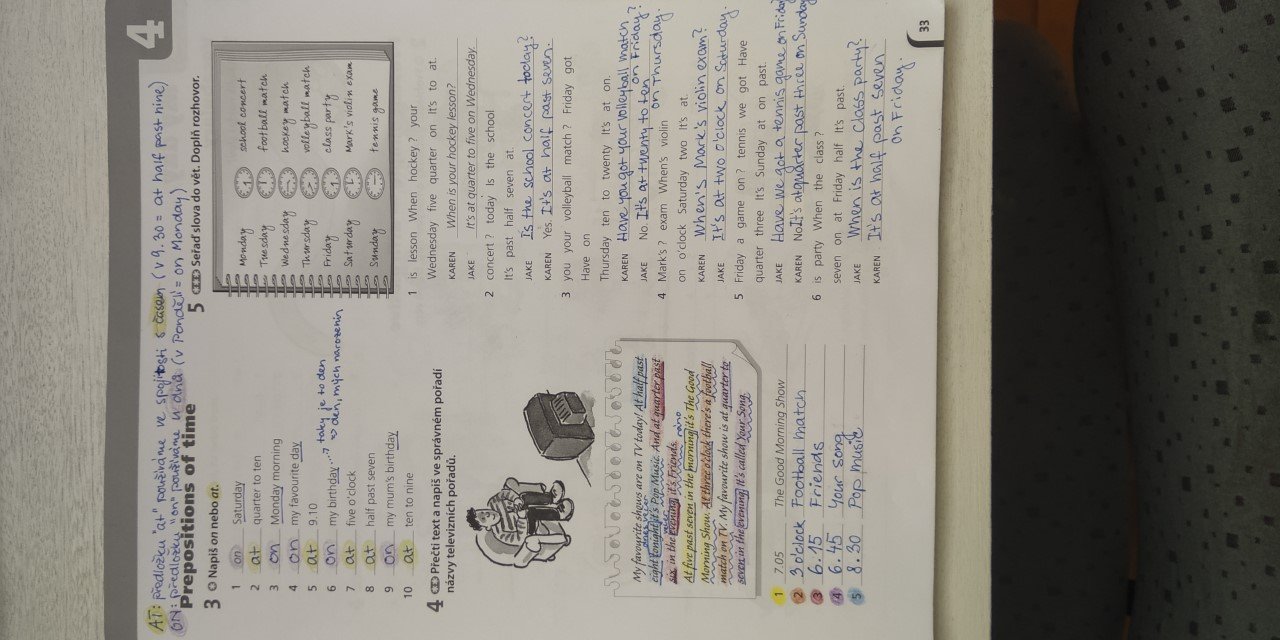 4
AT: předložku "at" používáme ve spojitosti s časem (v 9.30 = at half past nine)
ON: předložku "on" používáme u dnů (v Pondělí = on Monday)
Prepositions of time
3 Napiš on nebo at.
1 on Saturday
2 at quarter to ten
3 on Monday morning
4 on my favourite day
5 at 9.10
6 on my birthday...? taky je to den
=> den, mých narozenin
7 at five o'clock
8 at half past seven
9 on my mum's birthday
10 at ten to nine
4 Přečti text a napiš ve správném pořadí
názvy televizních pořadů.
My favourite shows are on TV today! At half past
eight tonight's Pop Music. And at quarter past
six in the evening, it's Friends.
ráno
At five past seven in the morning it's The Good
Morning Show. At three o'clock there's a football
match on TV. My favourite show is at quarter to
seven in the evening. It's called Your Song.
1 7.05 The Good Morning Show
2 3 o'clock Football match
3 6.15 Friends
4 6.45 Your song
5 8.30 Pop music
5 Seřaď slova do vět. Doplň rozhovor.
Monday school concert
Tuesday football match
Wednesday hockey match
Thursday volleyball match
Friday class party
Saturday Mark's violin exam
Sunday tennis game
1 is lesson When hockey ? your
Wednesday five quarter on It's to at.
KAREN When is your hockey lesson?
JAKE It's at quarter to five on Wednesday.
2 concert ? today Is the school
It's past half seven at.
JAKE Is the school concert today?
KAREN Yes. It's at half past seven.
3 you your volleyball match ? Friday got
Have on
Thursday ten to twenty It's at on.
KAREN Have you got your volleyball match
on Friday?
JAKE No. It's at twenty to ten
on Thursday.
4 Mark's ? exam When's violin
on o'clock Saturday two It's at
KAREN When's Mark's violin exam?
JAKE It's at two o'clock on Saturday.
5 Friday a game on ? tennis we got Have
quarter three It's Sunday at on past.
JAKE Have we got a tennis game on Friday
KAREN No. It's at quarter past three on Sunday
6 is party When the class ?
seven on at Friday half It's past.
JAKE When is the class party?
KAREN It's at half past seven
on Friday.
33